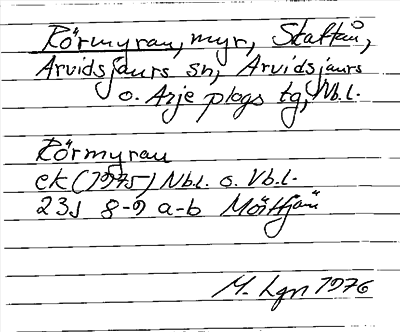 Rörmyran, myr, Staffan,
Arvidsjaurs sn, Arvidsjaurs
o. Arjeplogs tg, Nb.l.
Rörmyran
ek (1975) Nb.l. o. Vb.l.
23J 8-9 a-b
M. Lgn 1976